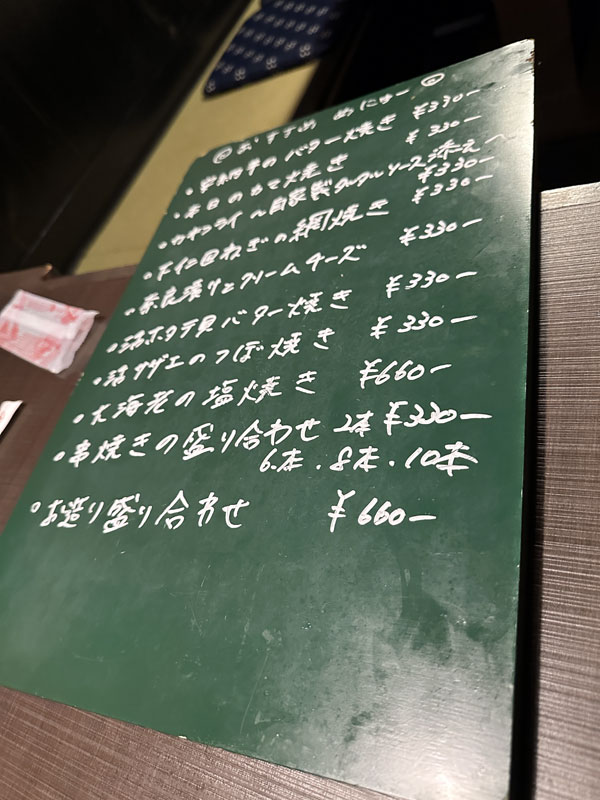 ◎おすすめ めにゅー◎
・安納芋のバター焼き ¥330ー
・本日のカマ焼き ¥330ー
・カキフライ〜自家製タルタルソース添え〜 ¥330ー
・下仁田ねぎの網焼き ¥330ー
・奈良漬けとクリームチーズ ¥330ー
・活ホタテ貝バター焼き ¥330ー
・活サザエのつぼ焼き ¥330ー
・大海老の塩焼き ¥660ー
・串焼きの盛り合わせ 2本 ¥330ー
6本・8本・10本
・お造り盛り合わせ ¥660ー